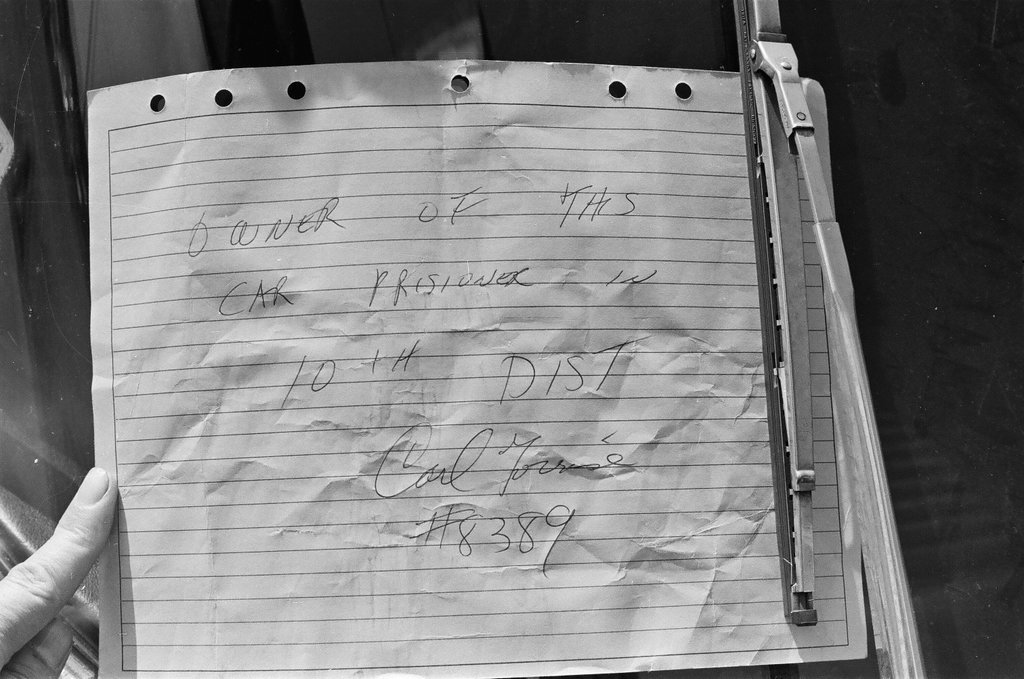 OWNER OF THIS
CAR PRISIONER IN
10TH DIST
Carl
#8389